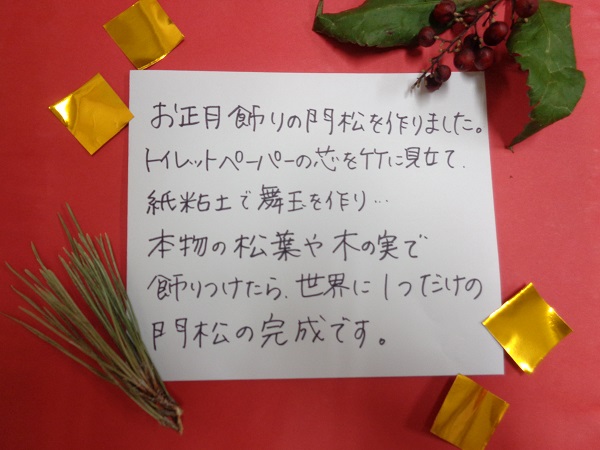 お正月飾りの門松を作りました。
トイレットペーパーの芯を竹に見立て、
紙粘土で舞玉を作り…
本物の松葉や木の実で
飾りつけたら、世界に1つだけの
門松の完成です。